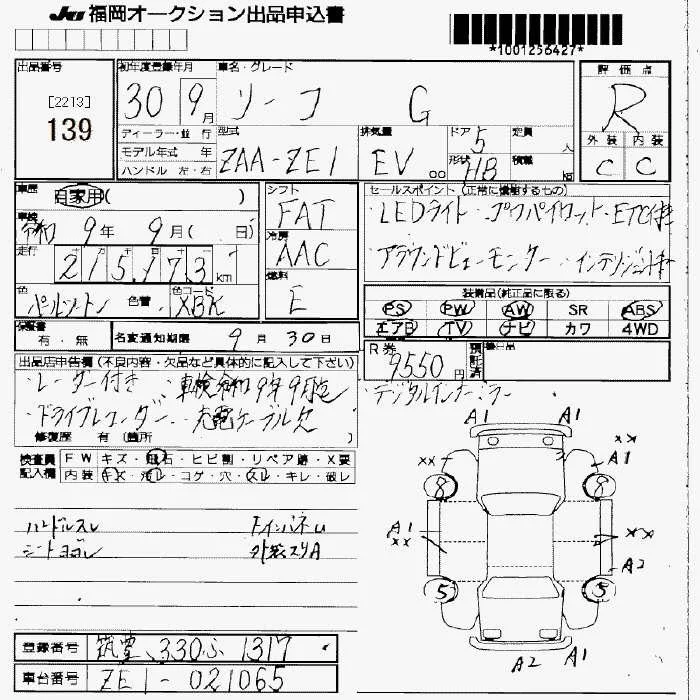 JU 福岡オークション出品申込書
*1001256427*
出品番号 初年度登録年月 車名・グレード 評価点
[2213]
139
30 9月 リーフ G R
ディーラー・並行 型式 排気量 ドア 5 定員 人 外装 内装
モデル年式 年 ZAA-ZE1 EV cc 形状 HB 積載 kg C C
ハンドル 左・右
車歴 自家用( ) シフト FAT セールスポイント(正常に機動するもの)
車検 令和 9年 9月( 日) 冷房 AAC ・LEDライト・プロパイロット・ETC付
走行 215,173km ・アラウンドビューモニター・インテリジェントキー
色 パールツートン 色替 色コード XBK 燃料 E 装備品(純正品に限る)
PS PW AW SR ABS
エアB TV ナビ カワ 4WD
保証書 有・無 名変通知期限 9月 30日
R券 9550円 預託済 後日品
出品店申告欄(不良内容・欠品など具体的に記入して下さい)
・レーダー付き ・車検令和9年9月迄 ・デジタルインナーミラー
・ドライブレコーダー ・充電ケーブル欠
修復歴 有(箇所 )
検査員 FW キズ・飛石・ヒビ割・リペア跡・X要
記入欄 内装 キズ・汚レ・コゲ・穴・スレ・キレ・破レ
ハンドルスレ
シートヨゴレ 外装スリA
A1 A1
xx xx A1
8 8
A1
xx xx
A2
5 5
A2 A1
登録番号 筑豊 330ふ 1317
車台番号 ZE1-021065